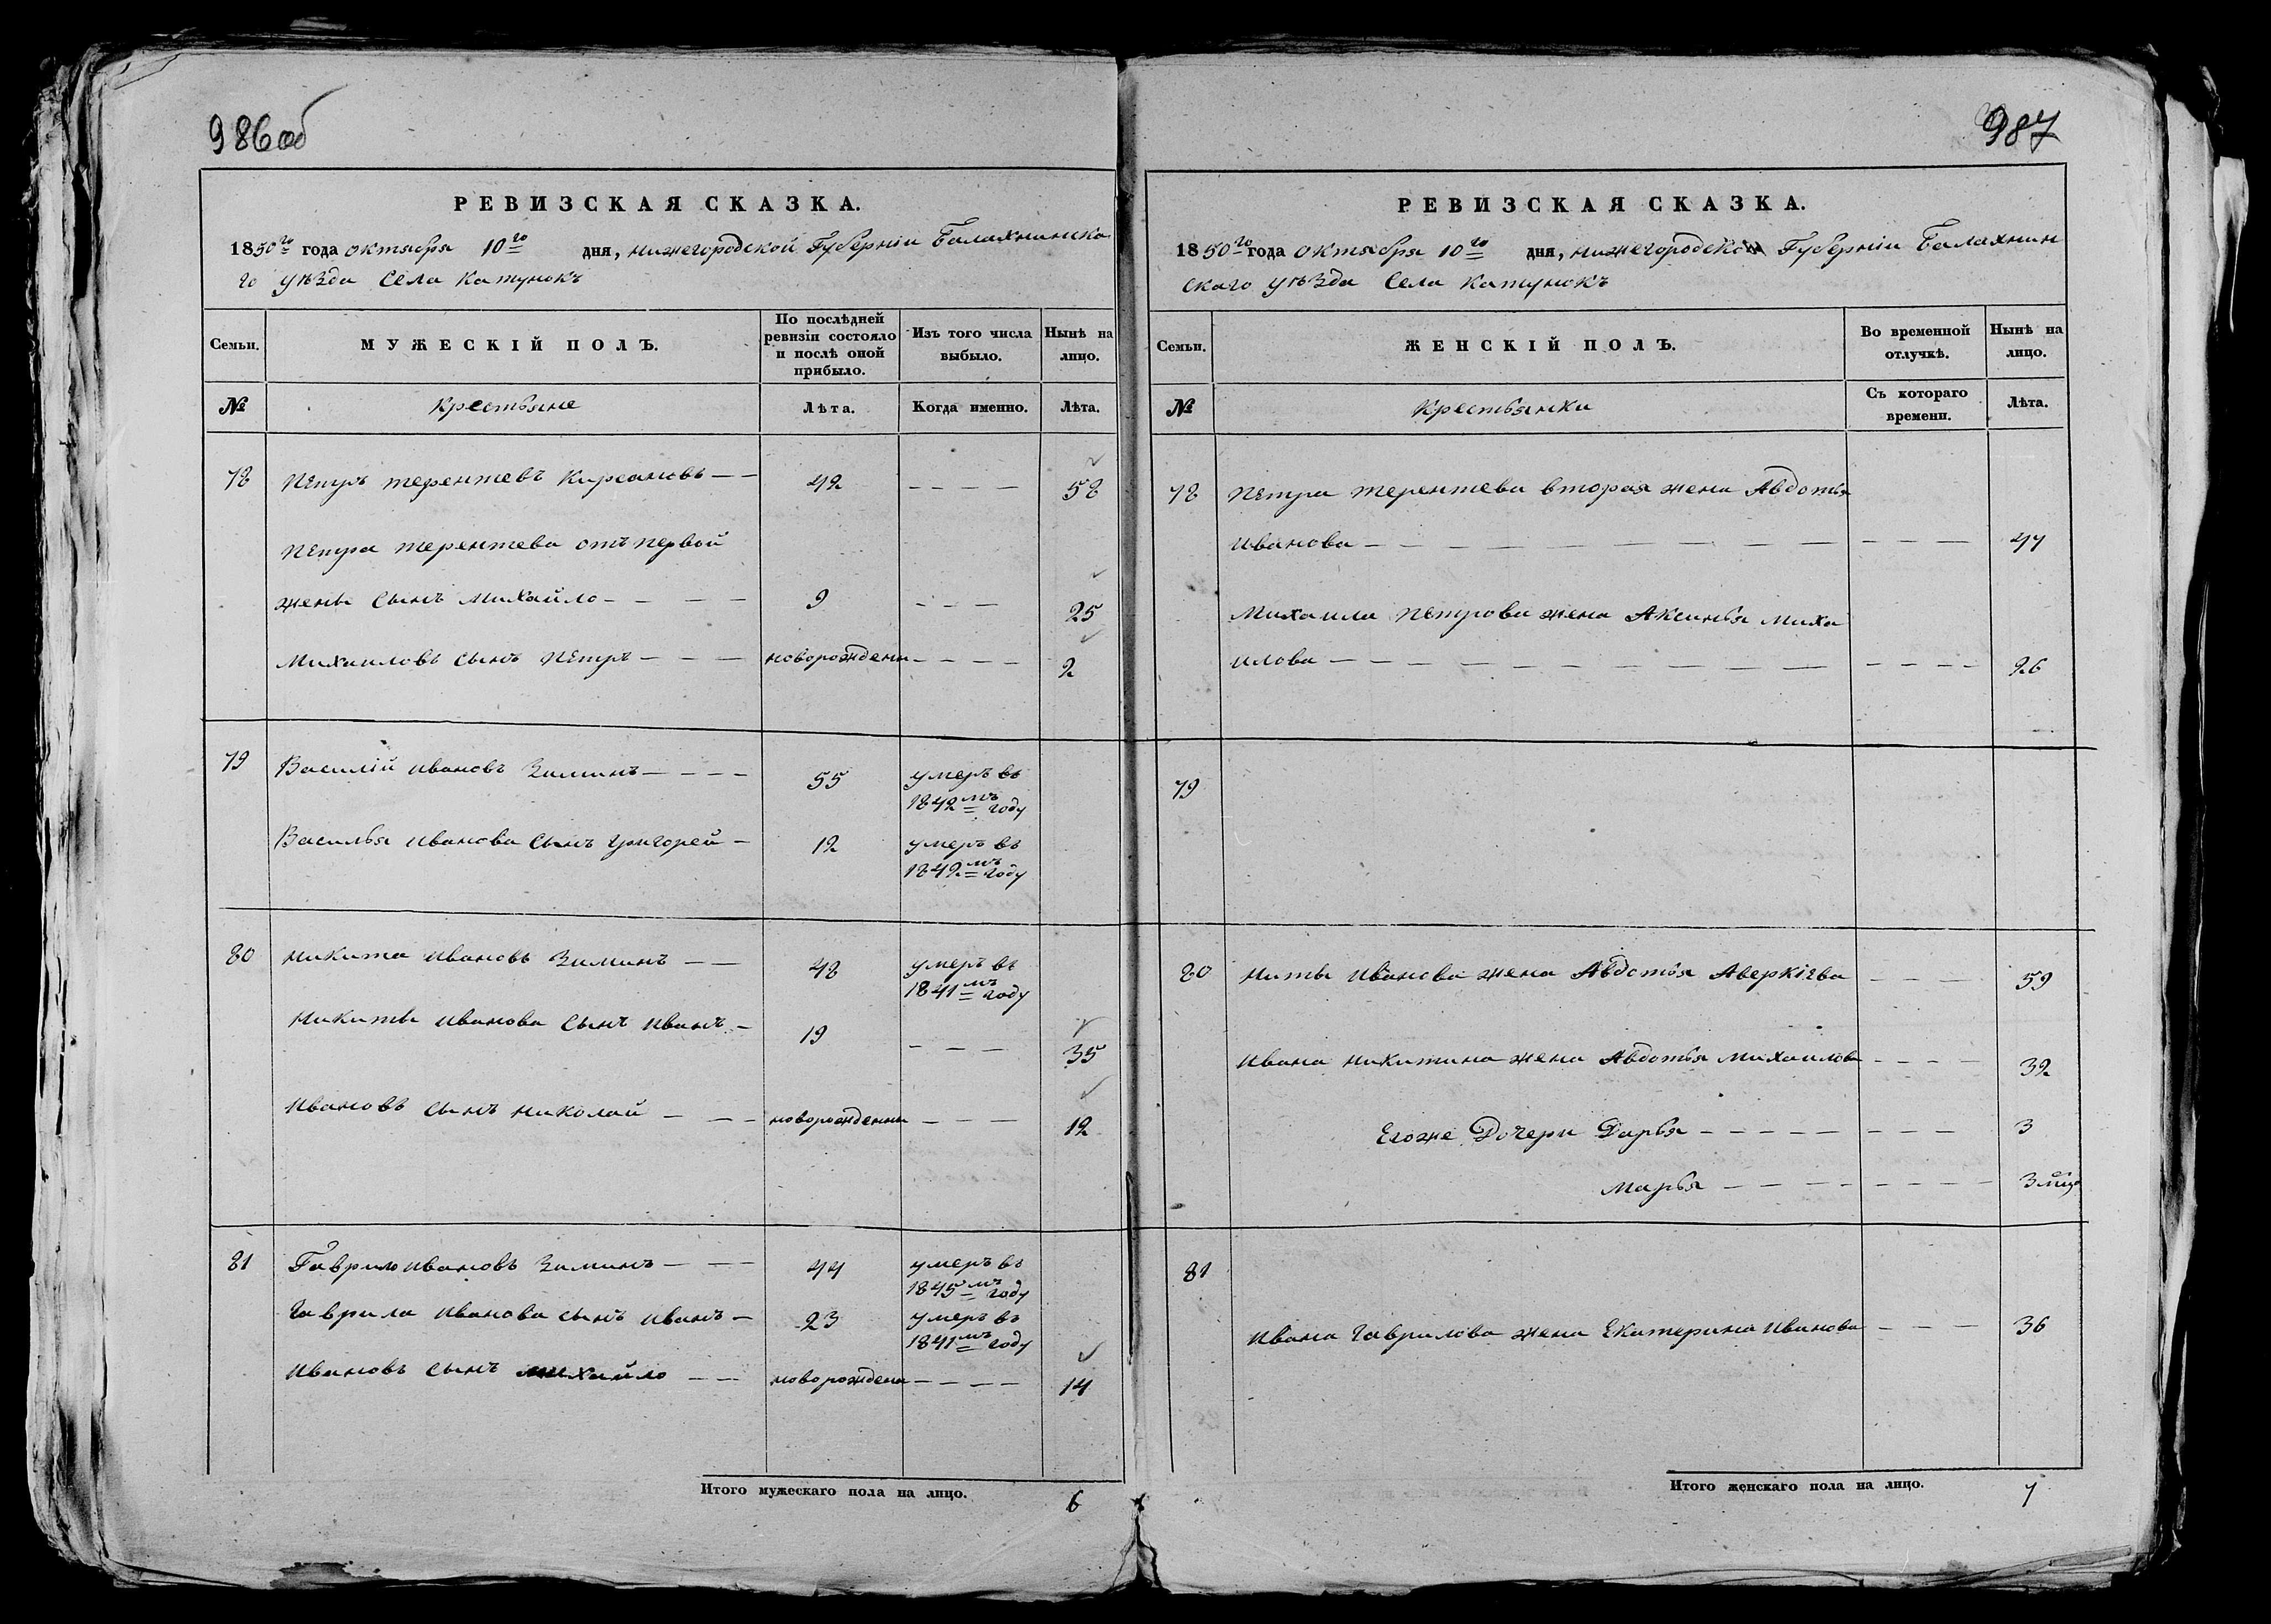 986об
РЕВИЗСКАЯ СКАЗКА.
1850го года октября 10го дня, нижегородской Губерніи Балахнинска
го уѣзда Села Катунокъ
Семьи.
МУЖЕСКІЙ ПОЛЪ.
По послѣдней ревизіи состояло и послѣ оной прибыло.
Изъ того числа выбыло.
Нынѣ на лицо.
№
Крестьяне
Лѣта.
Когда именно.
Лѣта.
78 Петръ терентевъ Кирсановъ — — 42 — — — — 58
Петра терентева отъ первой
жены Сынъ михайло — — — — 9 — — — 25
Михаиловъ сынъ Петръ — — — новорожденъ — — — — 2
79 Василій ивановъ Зиминъ — — — — 55 умеръ въ
1842мъ году
Василья иванова Сынъ григорей — 12 умеръ въ
1842мъ году
80 никита ивановъ Зиминъ — — 48 умеръ въ
1841мъ году
никиты иванова Сынъ иванъ — 19 — — — 35
ивановъ сынъ николай — — — новорожденны — — — 12
81 Гаврило ивановъ Зиминъ — — — 44 умеръ въ
1845мъ году
Гаврила иванова сынъ иванъ — 23 умеръ въ
1841мъ году
ивановъ сынъ михайло — — новорожденъ — — — — 14
Итого мужескаго пола на лицо. 6
987
РЕВИЗСКАЯ СКАЗКА.
1850го года октября 10го дня, нижегородской Губерніи Балахнин
скаго уѣзда Села Катунокъ
Семьи.
ЖЕНСКІЙ ПОЛЪ.
Во временной отлучкѣ.
Нынѣ на лицо.
№
Крестьянки
Съ котораго времени.
Лѣта.
78 Петра терентева вторая жена Авдотья
иванова — — — — — — — — — — — — 47
Михаила Петрова жена Аксинья миха
илова — — — — — — — — — — — — — 26
79
80 ниты иванова жена Авдотья Аверкіева — — — 59
ивана никитина жена Авдотья михаилова — — — 32
Егоже Дочери Дарья — — — — — — — — 3
марья — — — — — — — — 3 мѣсц
81
ивана гаврилова жена Екатерина иванова — — — 36
Итого женскаго пола на лицо. 7